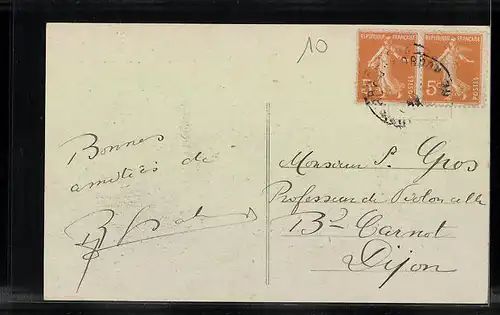 10
REPUBLIQUE FRANÇAISE REPUBLIQUE FRANÇAISE
POSTES 5c POSTES
Bonnes
amitiés de
Monsieur P. Gros
Professeur de Violoncelle
Bd Carnot
Dijon